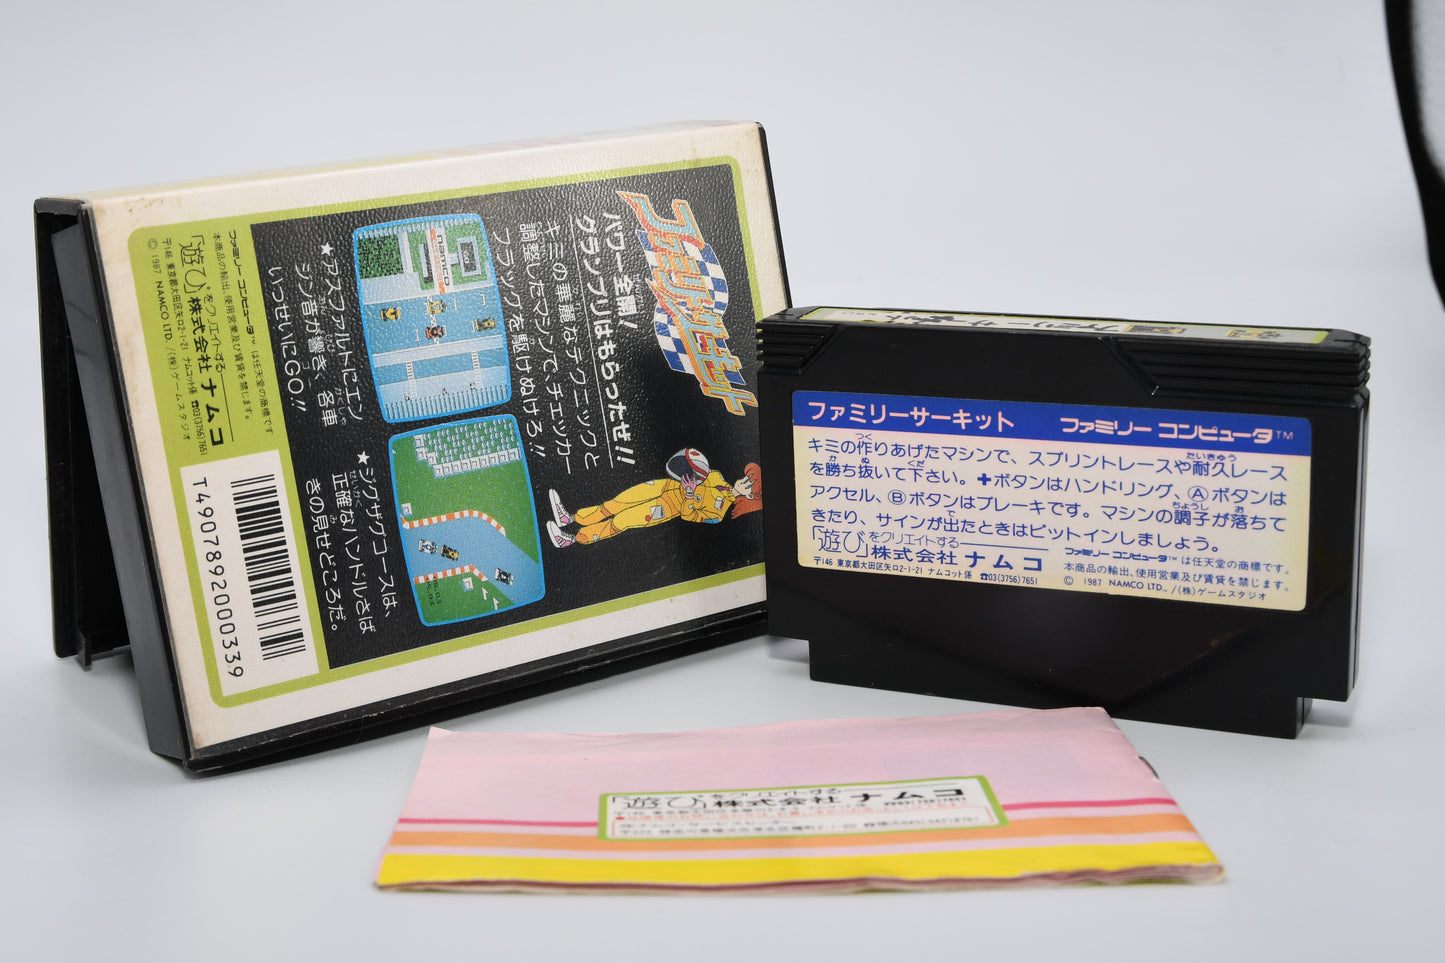 ファミリーサーキット
パワー全開！
グランプリはもらったぜ!!
キミの華麗なテクニックと
調整したマシンで チェッカー
フラッグを駆けぬけろ!!
namco
★アスファルトにエン
ジン音が響き、各車
いっせいにGO!!
★ジグザグコースは、
正確なハンドルさば
きの見せどころだ。
ファミリーコンピュータ™ は任天堂の商標です
本商品の輸出、使用営業及び賃貸を禁じます。
「遊び」をクリエイトする
株式会社 ナムコ
〒146 東京都大田区矢口2-1-21 ナムコット係 ☎03(3756)7651
© 1987 NAMCO LTD., /(株)ゲームスタジオ
T4907892000339
ファミリーサーキット
ファミリーサーキット ファミリー コンピュータ™
キミの作りあげたマシンで、スプリントレースや耐久レース
を勝ち抜いて下さい。✚ボタンはハンドリング、Ⓐボタンは
アクセル、Ⓑボタンはブレーキです。マシンの調子が落ちて
きたり、サインが出たときはピットインしましょう。
「遊び」をクリエイトする 株式会社 ナムコ
〒146 東京都大田区矢口2-1-21 ナムコット係 ☎03(3756)7651
ファミリー コンピュータ™ は任天堂の商標です。
本商品の輸出、使用営業及び賃貸を禁じます。
© 1987 NAMCO LTD., /(株)ゲームスタジオ
「遊び」をクリエイトする 株式会社 ナムコ